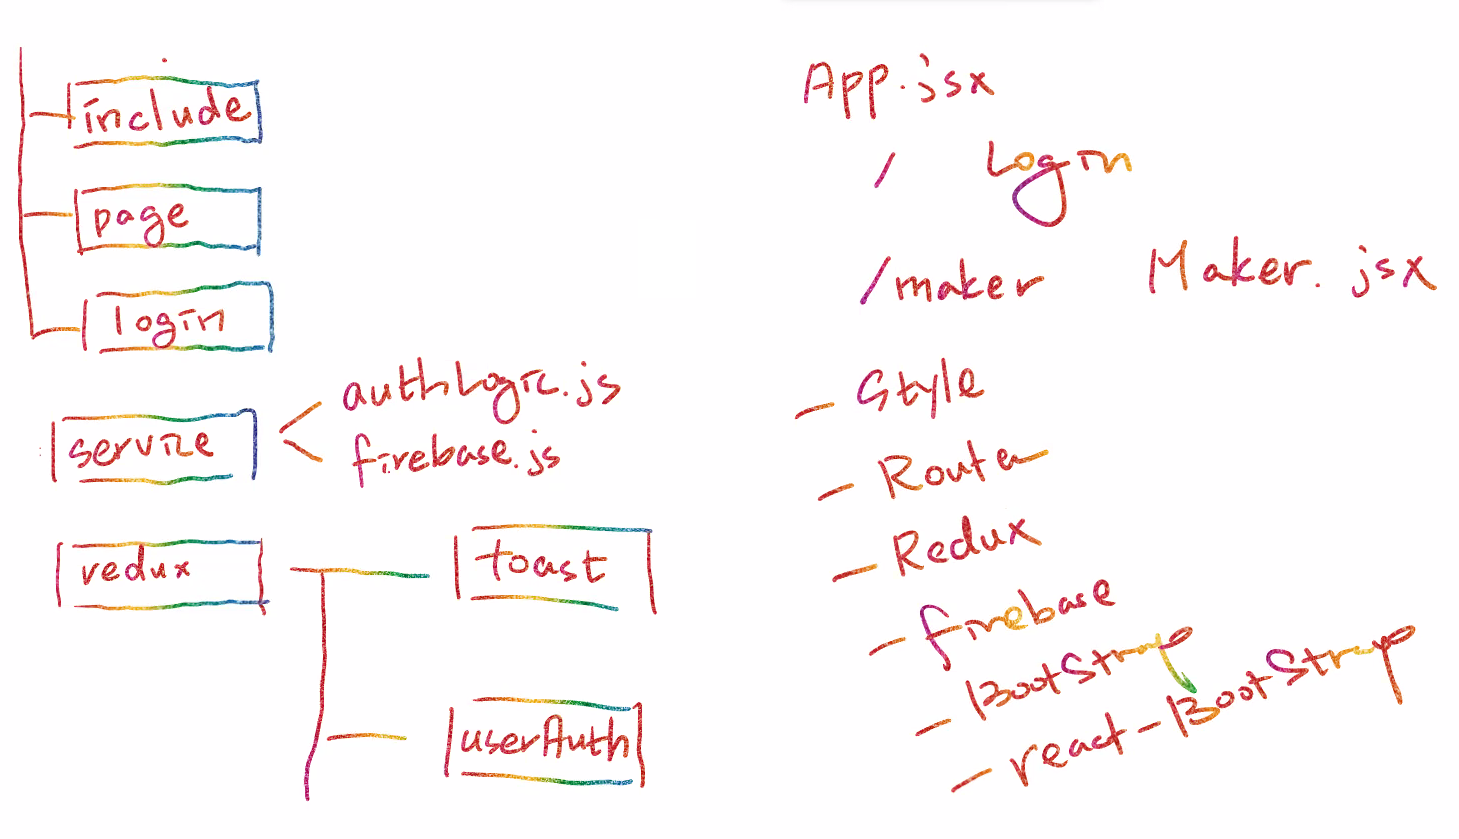 include
page
login
service
authLogic.js
firebase.js
redux
toast
userAuth
App.jsx
/ Login
/maker Maker.jsx
- Style
- Router
- Redux
- firebase
- BootStrap
- react-BootStrap